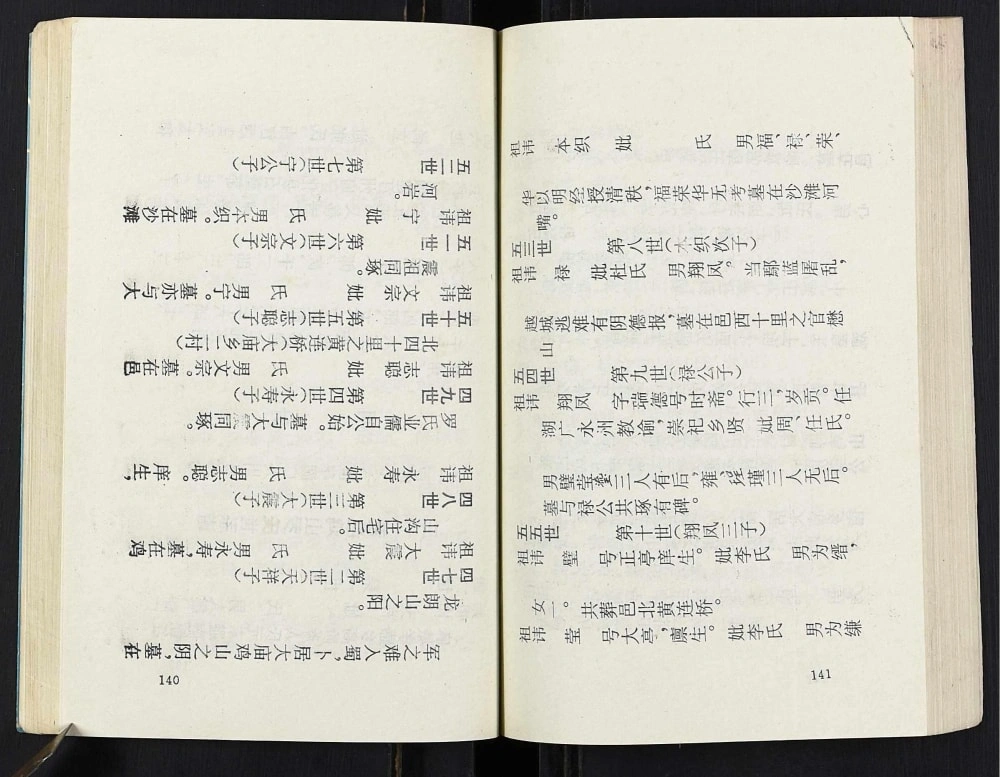 军之难入蜀，卜居大庙鸡山之阴，墓在
龙朗山之阳。
四七世 第二世（天祥子）
祖讳 大震 妣 氏 男永寿，墓在鸡
山沟住宅后。
四八世 第三世（大震子）
祖讳 永寿 妣 氏 男志聪。庠生，
罗氏业儒自公始。墓与大震同琢。
四九世 第四世（永寿子）
祖讳 志聪 妣 氏 男文宗。墓在邑
北四十里之黄连桥（大庙乡二村）
五十世 第五世（志聪子）
祖讳 文宗 妣 氏 男宁。墓亦与大
震祖同琢。
五一世 第六世（文宗子）
祖讳 宁 妣 氏 男本织。墓在沙滩
河岩。
五二世 第七世（宁公子）
140
祖讳 本织 妣 氏 男福、禄、荣、
华以明经授清秩，福荣华无考墓在沙滩河
嘴。
五三世 第八世（本织次子）
祖讳 禄 妣杜氏 男翔凤。当鄢蓝屠乱，
越城逃难有阴德报，墓在邑西十里之官懋
山
五四世 第九世（禄公子）
祖讳 翔凤 字瑞德号时斋。行三，岁贡。任
湖广永州教谕，崇祀乡贤 妣周、任氏。
男璧莹 三人有后，雍、 瑾三人无后。
墓与禄公共琢有碑。
五五世 第十世（翔凤三子）
祖讳 璧 号正亭庠生。妣李氏 男为缙，
女一。共葬邑北黄连桥。
祖讳 莹 号大亭，廪生。妣李氏 男为缣
141